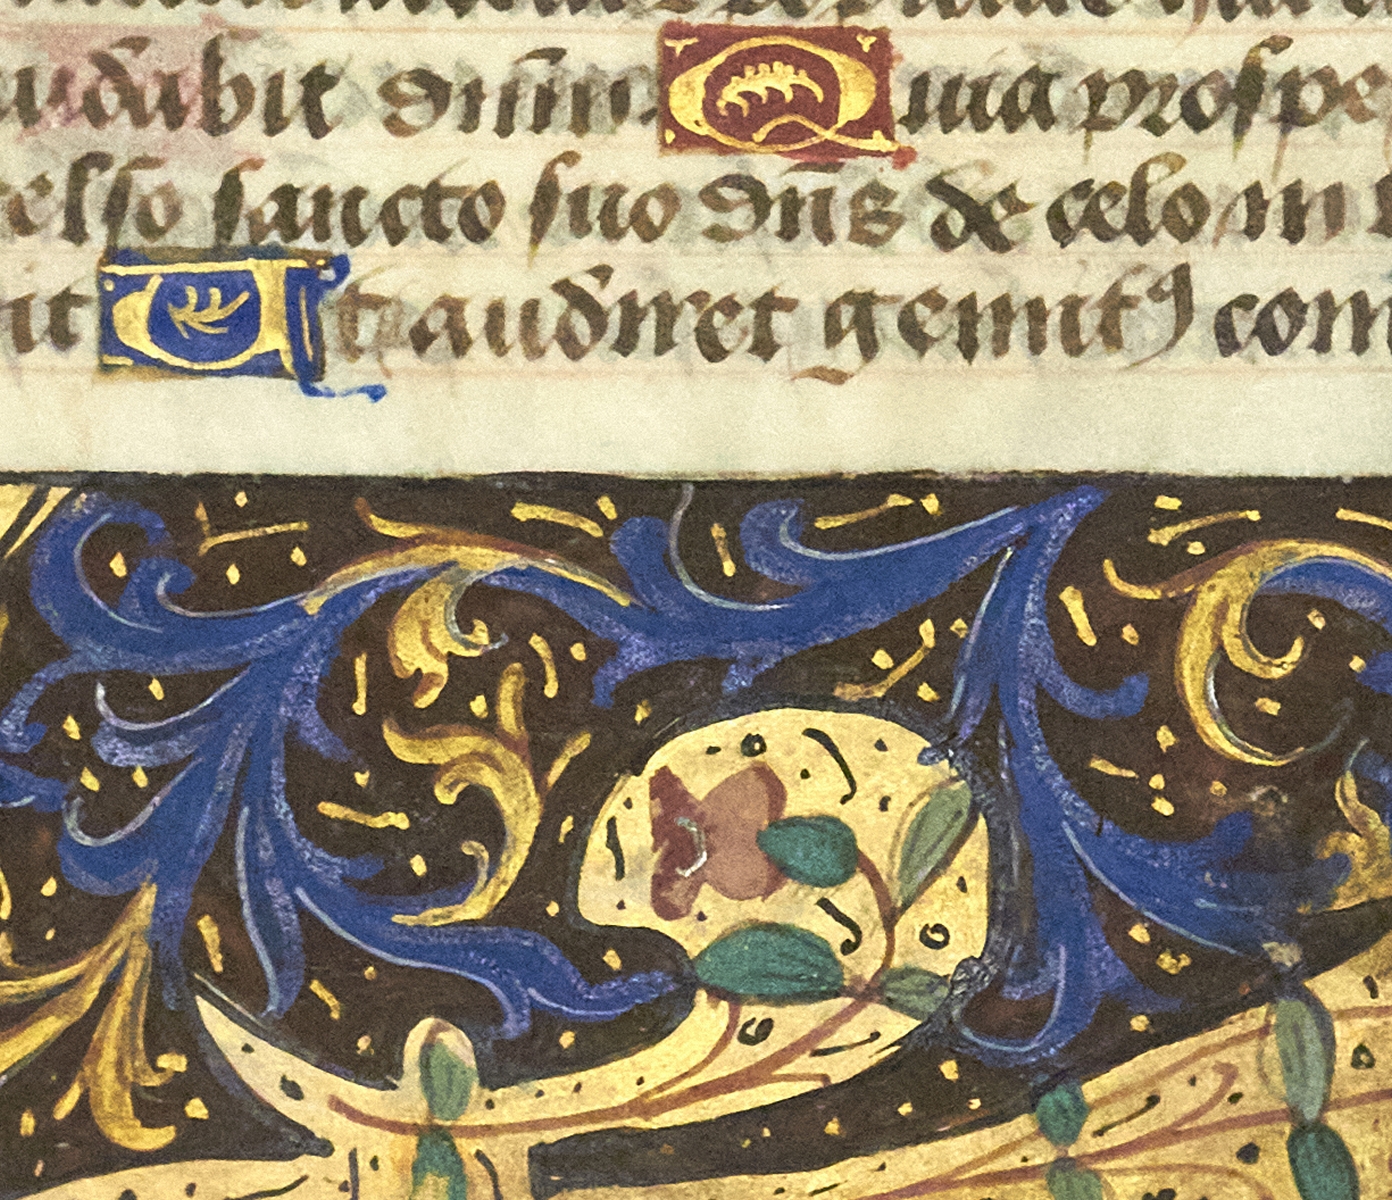 laudabit dn̄m Quia prospe
excelso sancto suo dn̄s de celo in
it Ut audiret gemitꝰ com